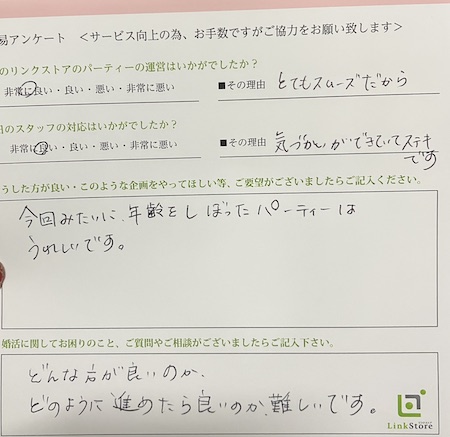 易アンケート <サービス向上の為、お手数ですがご協力をお願い致します>
のリンクストアのパーティーの運営はいかがでしたか?
非常に良い・良い・悪い・非常に悪い ■その理由 とてもスムーズだから
日のスタッフの対応はいかがでしたか?
非常に良い・良い・悪い・非常に悪い ■その理由 気づかいができていてステキ
です
うした方が良い・このような企画をやってほしい等、ご要望がございましたらご記入ください。
今回みたいに、年齢をしぼったパーティーは
うれしいです。
婚活に関してお困りのこと、ご質問やご相談がございましたらご記入下さい。
どんな方が良いのか、
どのように進めたら良いのか、難しいです。
LinkStore